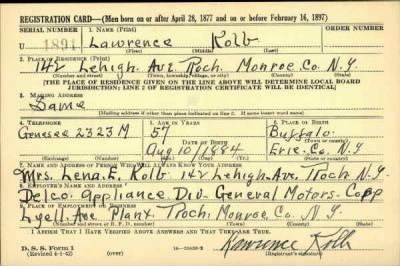 REGISTRATION CARD—(Men born on or after April 28, 1877 and on or before February 16, 1897)
SERIAL NUMBER 1. NAME (Print)
U 1891 Lawrence Kolb
(First) (Middle) (Last)
2. PLACE OF RESIDENCE (Print)
142 Lehigh Ave Roch. Monroe Co. N.Y.
(Number and street) (Town, township, village, or city) (County) (State)
[THE PLACE OF RESIDENCE GIVEN ON THE LINE ABOVE WILL DETERMINE LOCAL BOARD
JURISDICTION; LINE 2 OF REGISTRATION CERTIFICATE WILL BE IDENTICAL]
3. MAILING ADDRESS
Same
[Mailing address if other than place indicated on line 2. If same insert word same]
4. TELEPHONE 5. AGE IN YEARS 6. PLACE OF BIRTH
Genesee 2323 M 57 Buffalo
DATE OF BIRTH (Town or county)
Aug 10 1884 Erie Co. N.Y.
(Exchange) (Number) (Mo.) (Day) (Yr.) (State or country)
7. NAME AND ADDRESS OF PERSON WHO WILL ALWAYS KNOW YOUR ADDRESS
Mrs. Lena E. Kolb 142 Lehigh Ave. Roch N.Y.
8. EMPLOYER'S NAME AND ADDRESS
Delco Appliance Div-General Motors-Corp
9. PLACE OF EMPLOYMENT OR BUSINESS
Lyell Ave Plant Roch. Monroe Co. N.Y.
(Number and street or R. F. D. number) (Town) (County) (State)
I AFFIRM THAT I HAVE VERIFIED ABOVE ANSWERS AND THAT THEY ARE TRUE.
D. S. S. Form 1
(Revised 4-1-42) (over)
Lawrence Kolb
(Registrant's signature)